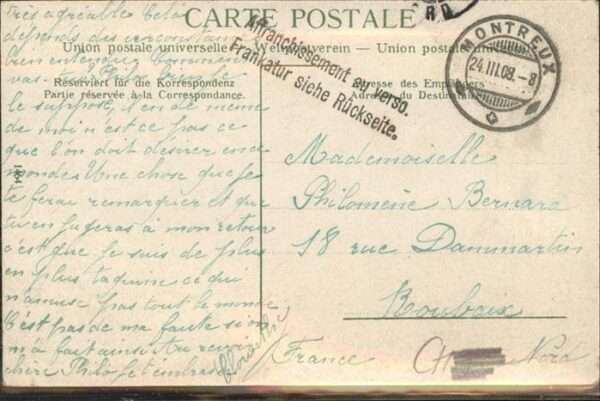 CARTE POSTALE
Union postale universelle – Weltpostverein – Union postale
Reserviert für die Korrespondenz
Partie réservée à la Correspondance.
Adresse des Empfängers
Adresse du Destinataire
Affranchissement au verso.
Frankatur siche Rückseite.
MONTREUX
24.III.08.-8
très agréable Cela
dépends des
bien entendu Comment
vas
le suppose, il en de même
de moi n'est ce pas ce
que l'on doit désirer en ce
monde. Une chose que je
te ferai remarquer et que
tu en jugeras à mon retour
c'est que je suis de plus
en plus taquine ce qui
n'amuse pas tout le monde
C'est pas de ma faute si on
m'a fait ainsi Au revoir
chère Philo je t'embrasse
Mademoiselle
Philomène Bernard
18 rue Dammartin
Roubaix
France Nord